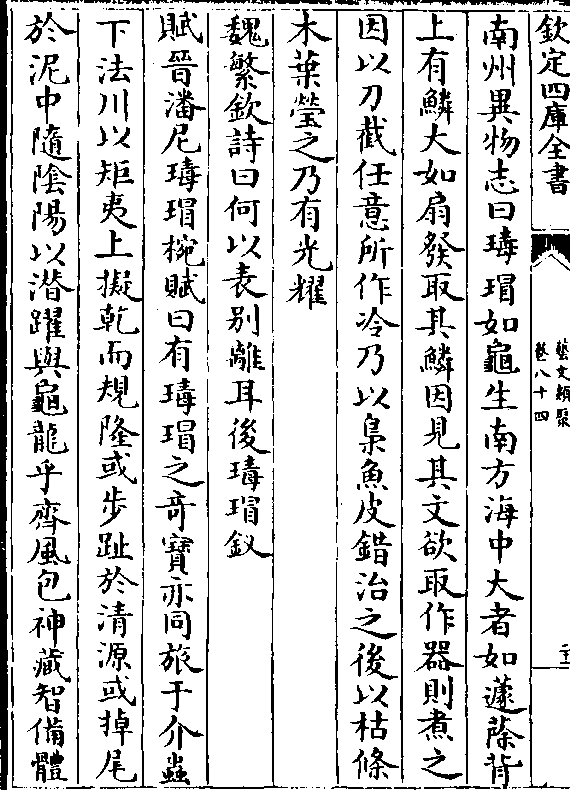 欽定四庫全書
藝文類聚
卷八十四
南州異物志曰瑇瑁如龜生南方海中大者如蘧蒢背
上有鱗大如扇發取其鱗因見其文欲取作器則煮之
因以刀截任意所作冷乃以梟魚皮錯治之後以枯條
木葉瑩之乃有光耀
魏繁欽詩曰何以表别離耳後瑇瑁釵
賦晉潘尼瑇瑁椀賦曰有瑇瑁之竒寳亦同旅于介蟲
下法川以矩夷上擬乾而規隆或步趾於清源或掉尾
於泥中隨隂陽以潜躍與龜龍乎齊風包神藏智備體